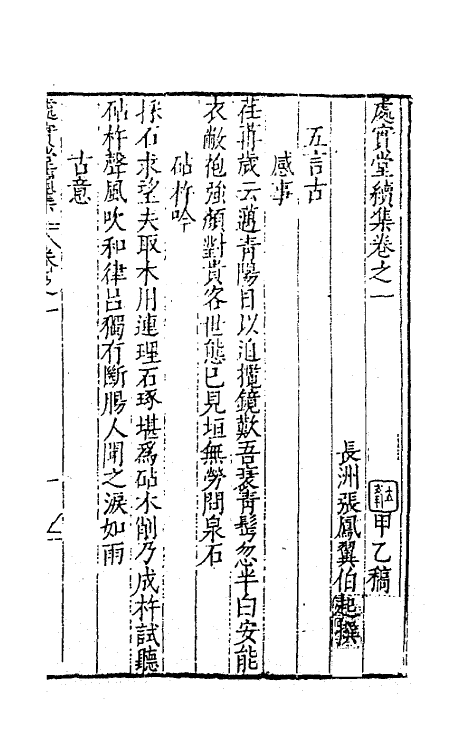 處實堂續集卷之一
甲乙稿
長洲張鳳翼伯起撰
五言古
感事
荏苒歲云邁青陽日以迫攬鏡歎吾衰青髩忽半白安能
衣敝袍強顏對貴客世態已見垣無勞問泉石
砧杵吟
採石求望夫取木用連理石琢堪爲砧木削乃成杵試聽
砧杵聲風吹和律呂獨有斷腸人聞之淚如雨
古意
處實堂續集 卷之一
一